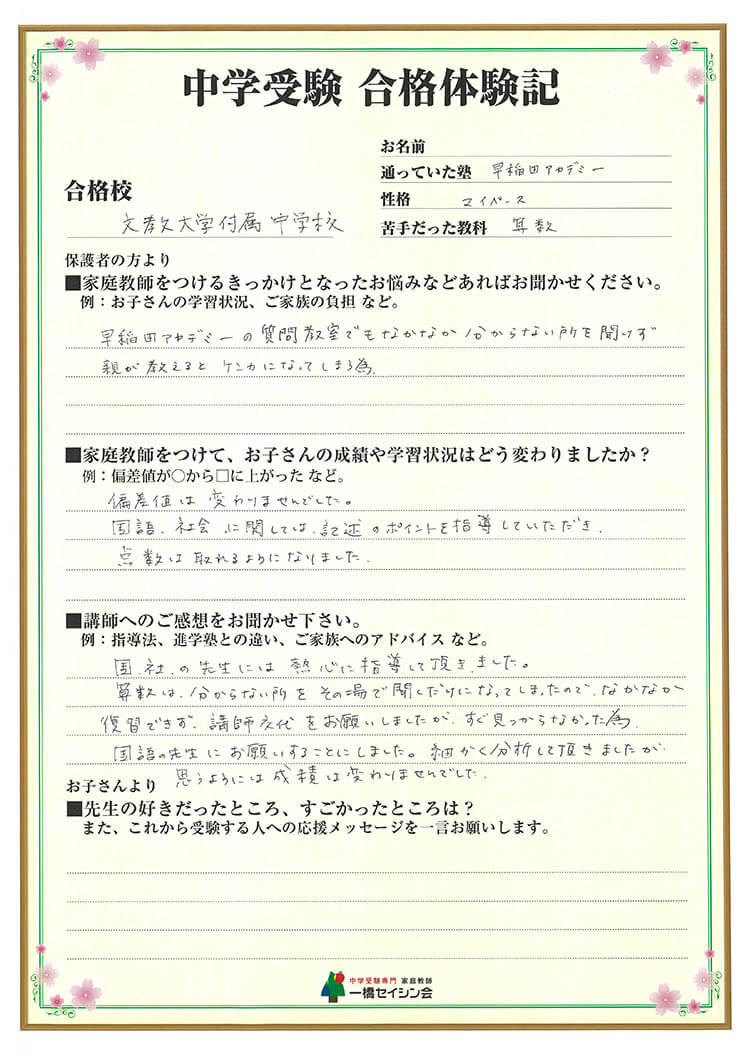 中学受験 合格体験記
お名前
通っていた塾 早稲田アカデミー
性格 マイペース
苦手だった教科 算数
合格校
文教大学付属中学校
保護者の方より
■家庭教師をつけるきっかけとなったお悩みなどあればお聞かせください。
例：お子さんの学習状況、ご家族の負担 など。
早稲田アカデミーの質問教室でもなかなか分からない所を聞けず
親が教えると ケンカになってしまう為
■家庭教師をつけて、お子さんの成績や学習状況はどう変わりましたか？
例：偏差値が○から□に上がった など。
偏差値は変わりませんでした。
国語、社会に関しては、記述のポイントを指導していただき、
点数は取れるようになりました.
■講師へのご感想をお聞かせ下さい。
例：指導法、進学塾との違い、ご家族へのアドバイス など。
国、社、の先生には 熱心に指導して頂きました。
算数は、分からない所をその場で聞くだけになってしまったので、なかなか
復習できず、講師交代をお願いしましたが、すぐ見つからなかった為
国語の先生にお願いすることにしました。細かく分析して頂きましたが
思うようには成積は変わりませんでした.
お子さんより
■先生の好きだったところ、すごかったところは？
また、これから受験する人への応援メッセージを一言お願いします。
中学受験専門 家庭教師
一橋セイシン会